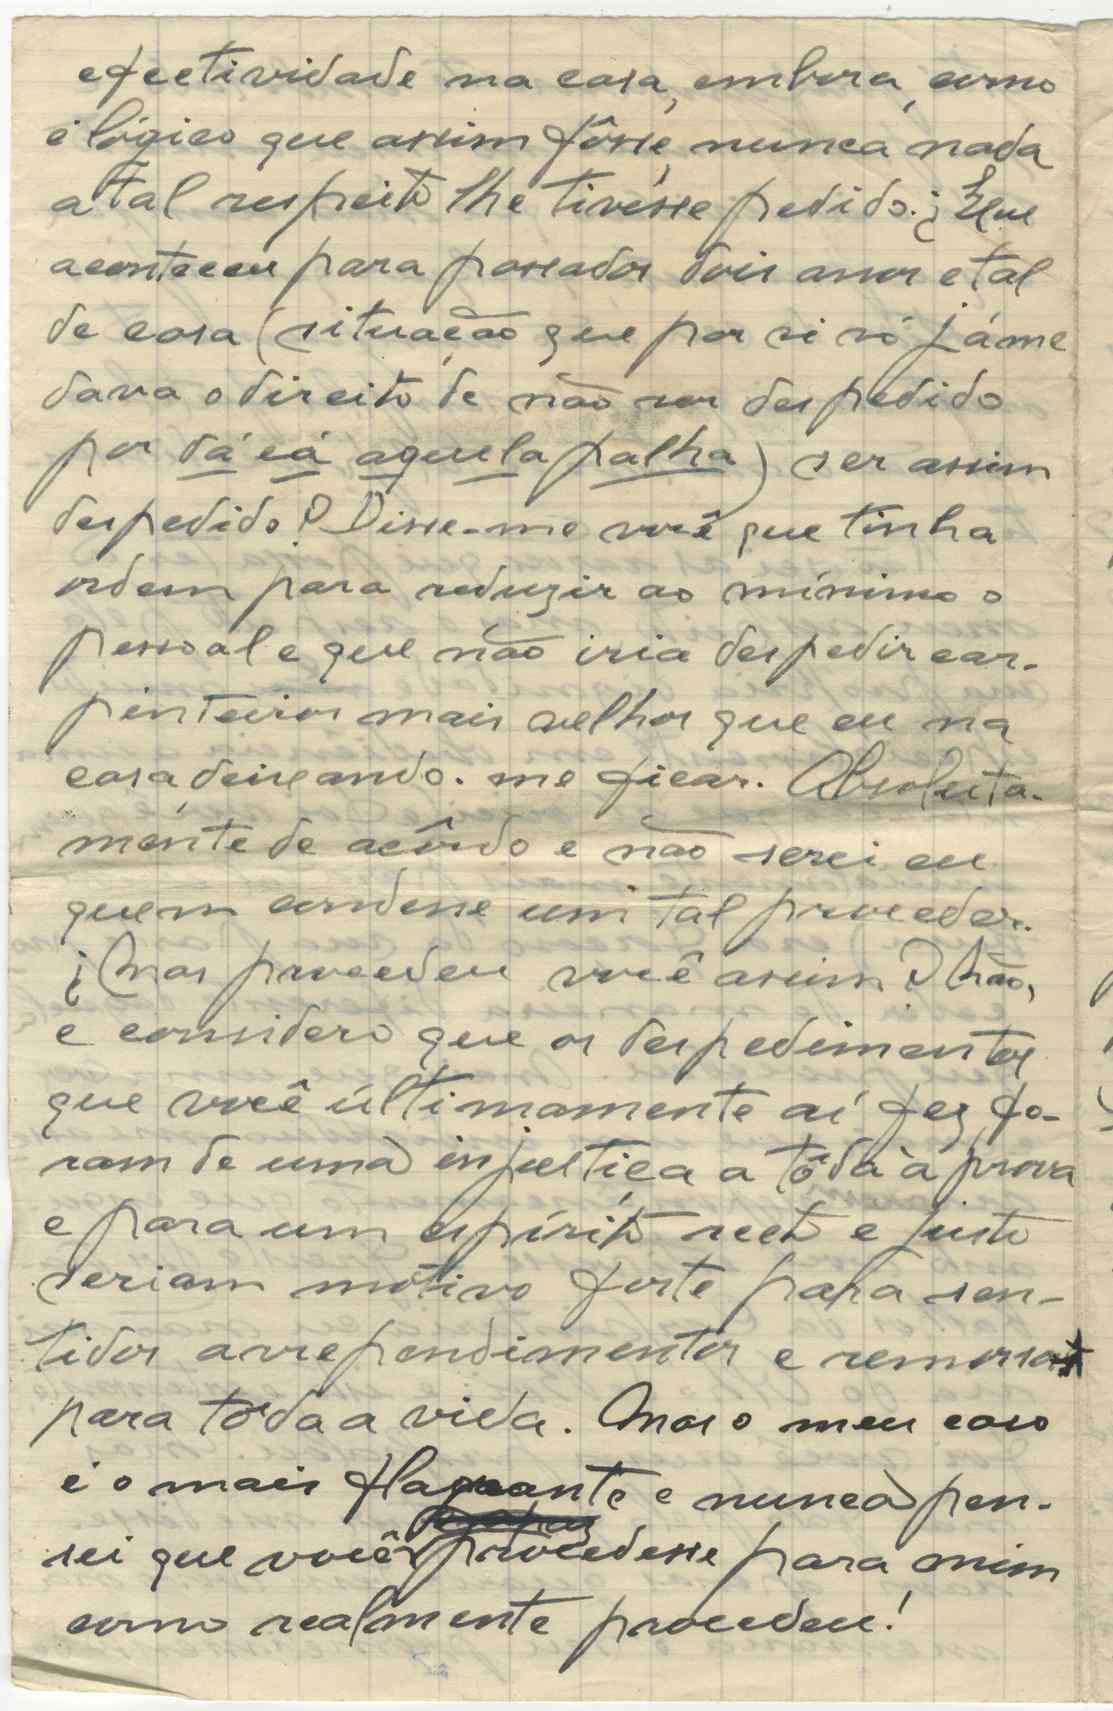 efectividade na casa, embora, como
é lógico que assim fôsse, nunca nada
a tal respeito lhe tivésse pedido. ¿ Que
aconteceu para passados dois anos e tal
de casa (situação que por si só já me
dava o direito de não ser despedido
por dá cá aquela palha) ser assim
despedido? Disse-me você que tinha
ordem para reduzir ao mínimo o
pessoal e que não iria despedir car-
pinteiros mais velhos que eu na
casa deixando-me ficar. Absoluta-
mente de acôrdo e não serei eu
quem condene um tal proceder.
¿ Mas procedeu você assim? Não,
e considero que os despedimentos
que você últimamente aí fez, fo-
ram de uma injustiça a tôda a prova
e para um espírito recto e justo
seriam motivo forte para sen-
tidos arrependimentos e remorsos
para tôda a vida. Mas o meu caso
é o mais flagrante e nunca pen-
sei que você procedesse para mim
como realmente procedeu!